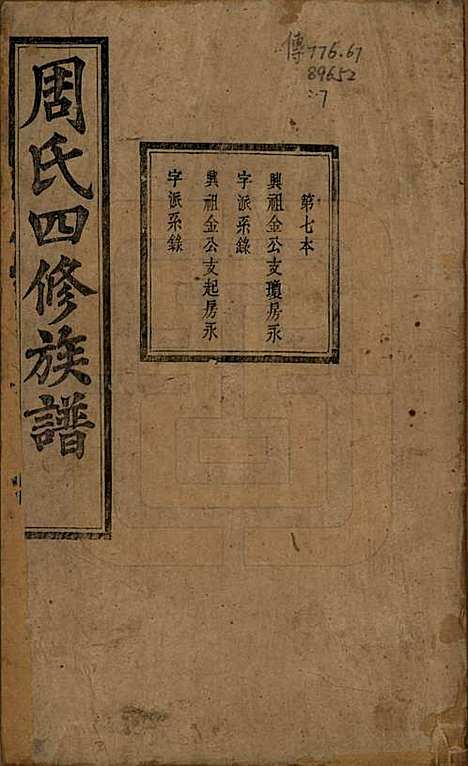 周氏四修族譜
第七本
興祖金公支瓊房永
字派系錄
興祖金公支起房永
字派系錄
傳776.67
89652
:7